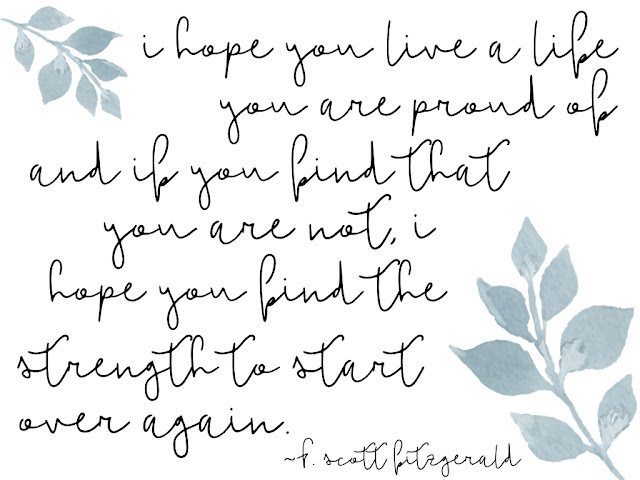 i hope you live a life
you are proud of
and if you find that
you are not, i
hope you find the
strength to start
over again.
~f. scott fitzgerald